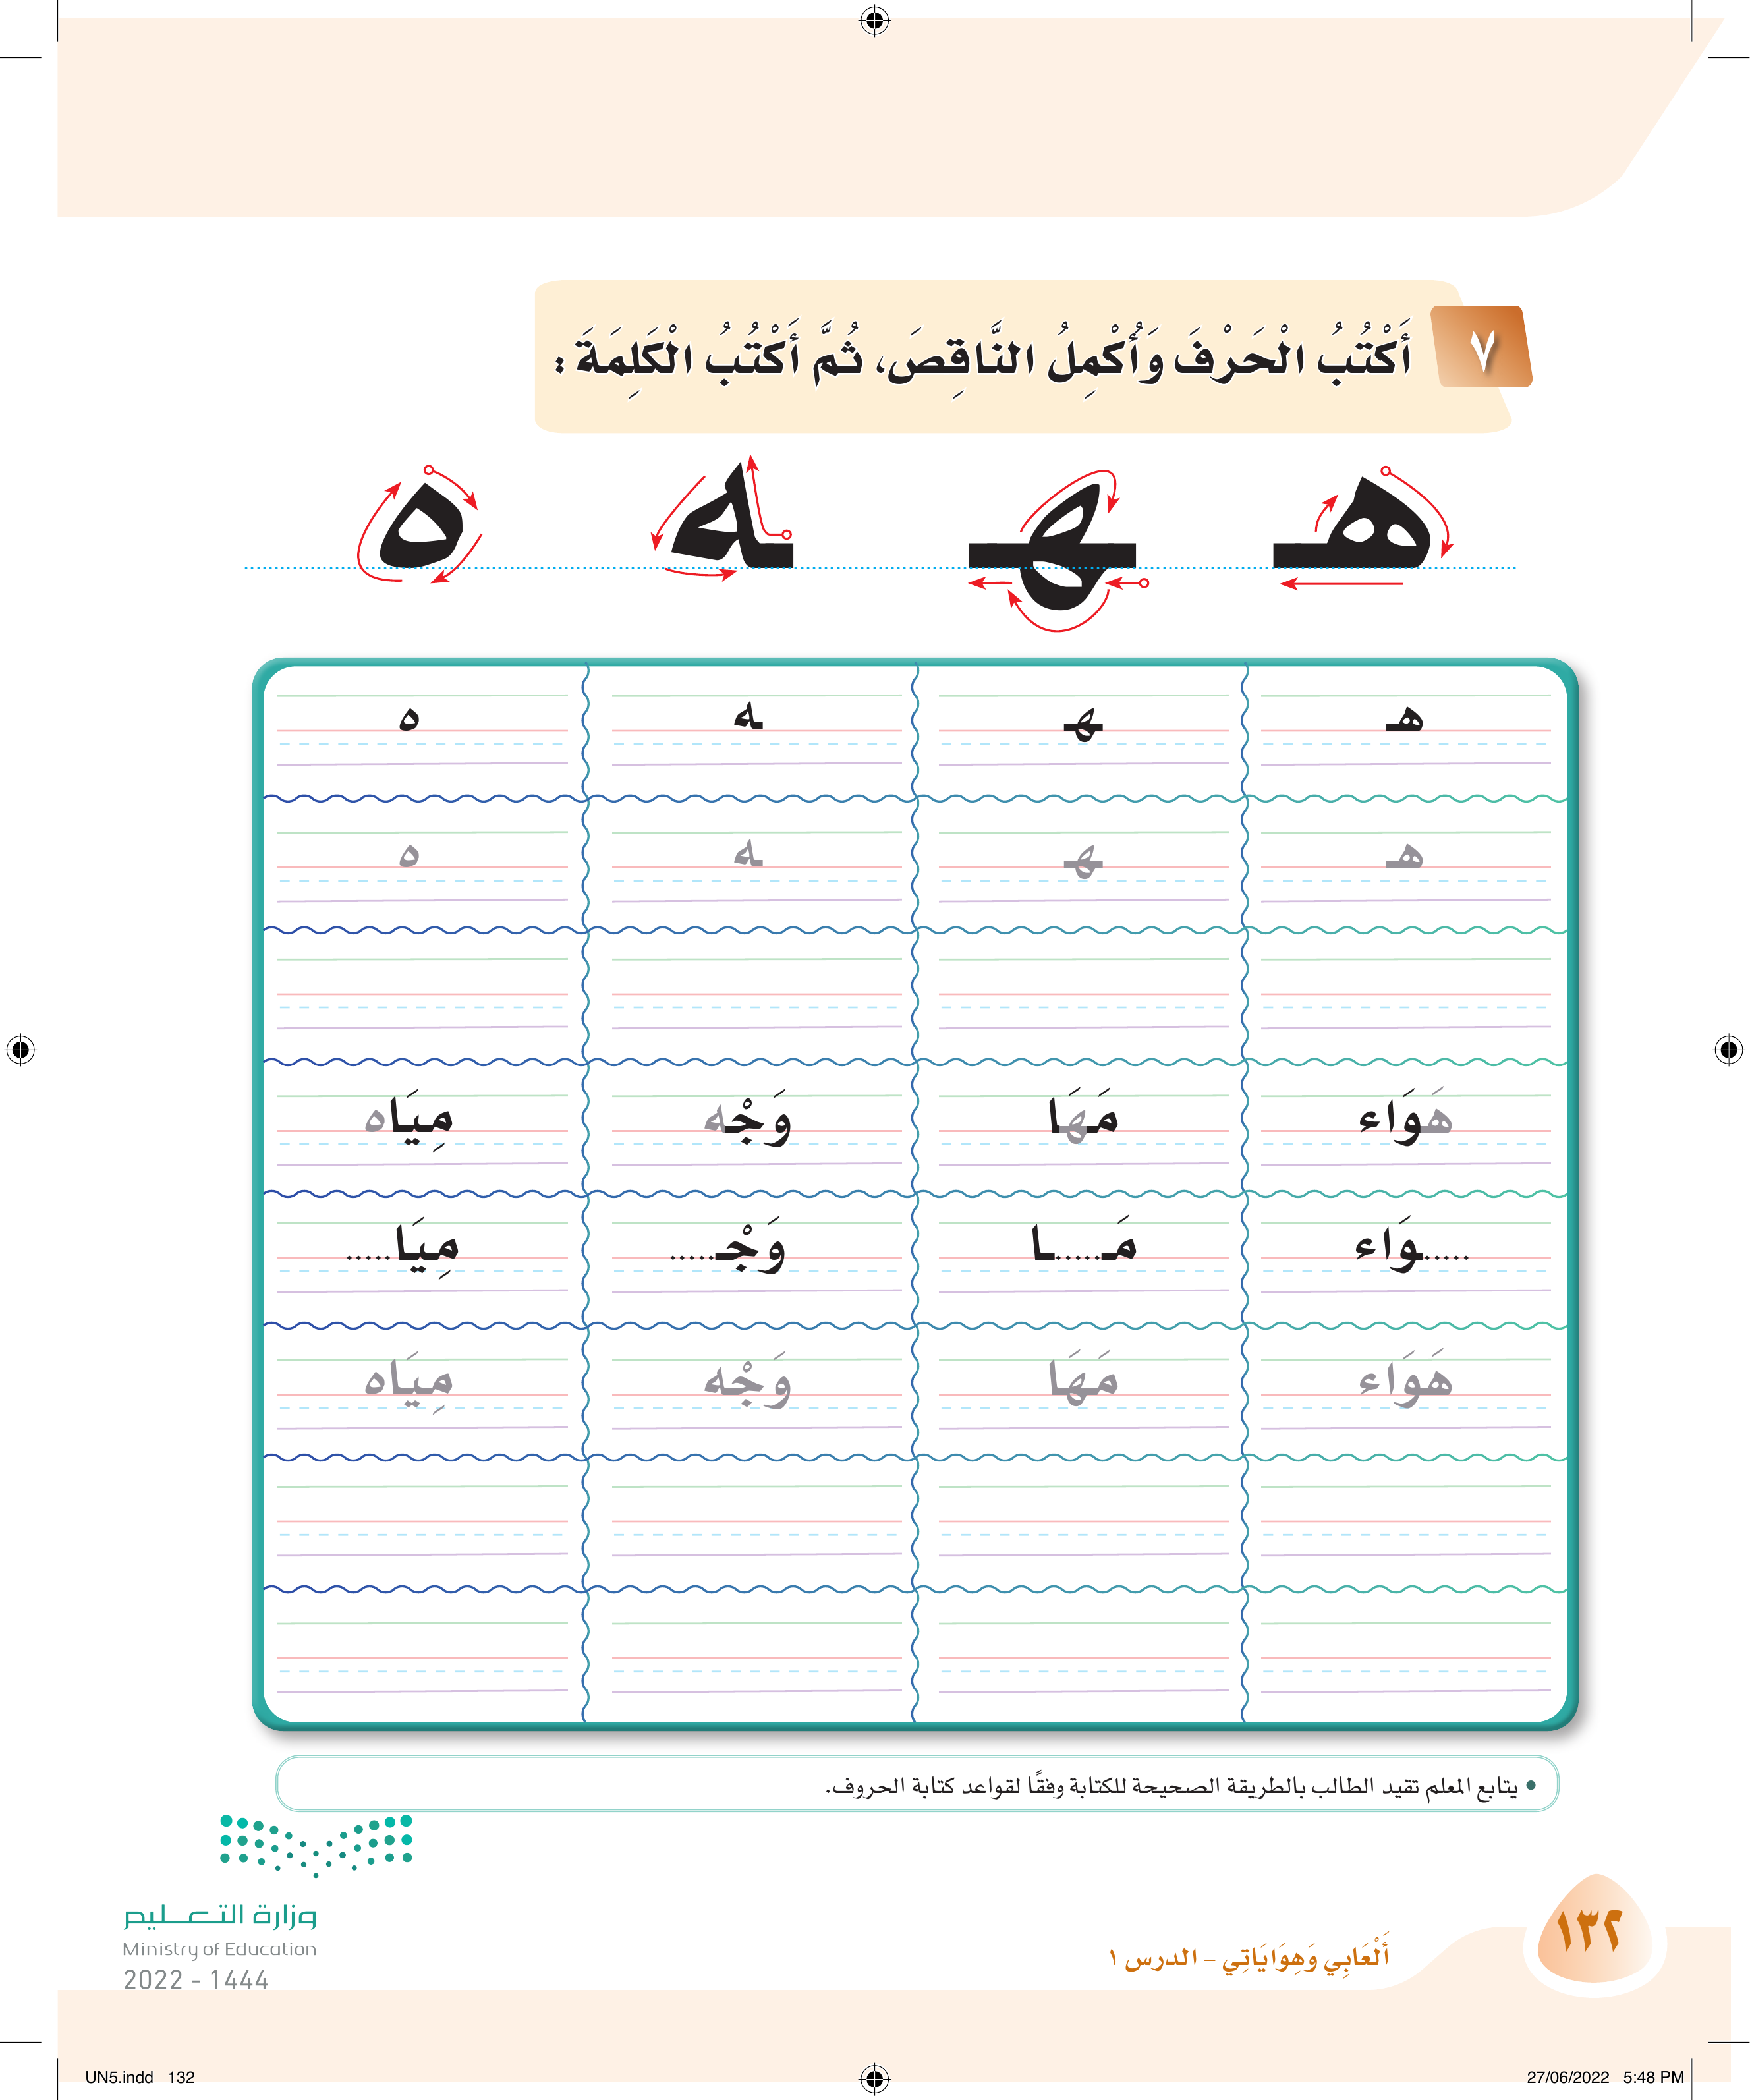 ٧
أَكْتُبُ الْحَرْفَ وَأُكْمِلُ النَّاقِصَ، ثُمَّ أَكْتُبُ الْكَلِمَةَ :
هـ ـهـ ـه ه
هـ ـهـ ـه ه
هـ ـهـ ـه ه
هَوَاء مَهَا وَجْه مِيَاه
.....ـوَاء مَـ.....ـا وَجْـ..... مِيَا.....
هَوَاء مَهَا وَجْه مِيَاه
• يتابع المعلم تقيد الطالب بالطريقة الصحيحة للكتابة وفقًا لقواعد كتابة الحروف.
وزارة التعـــليم
Ministry of Education
2022 - 1444
أَلْعَابِي وَهِوَايَاتِي – الدرس ١
١٣٢
UN5.indd 132
27/06/2022 5:48 PM